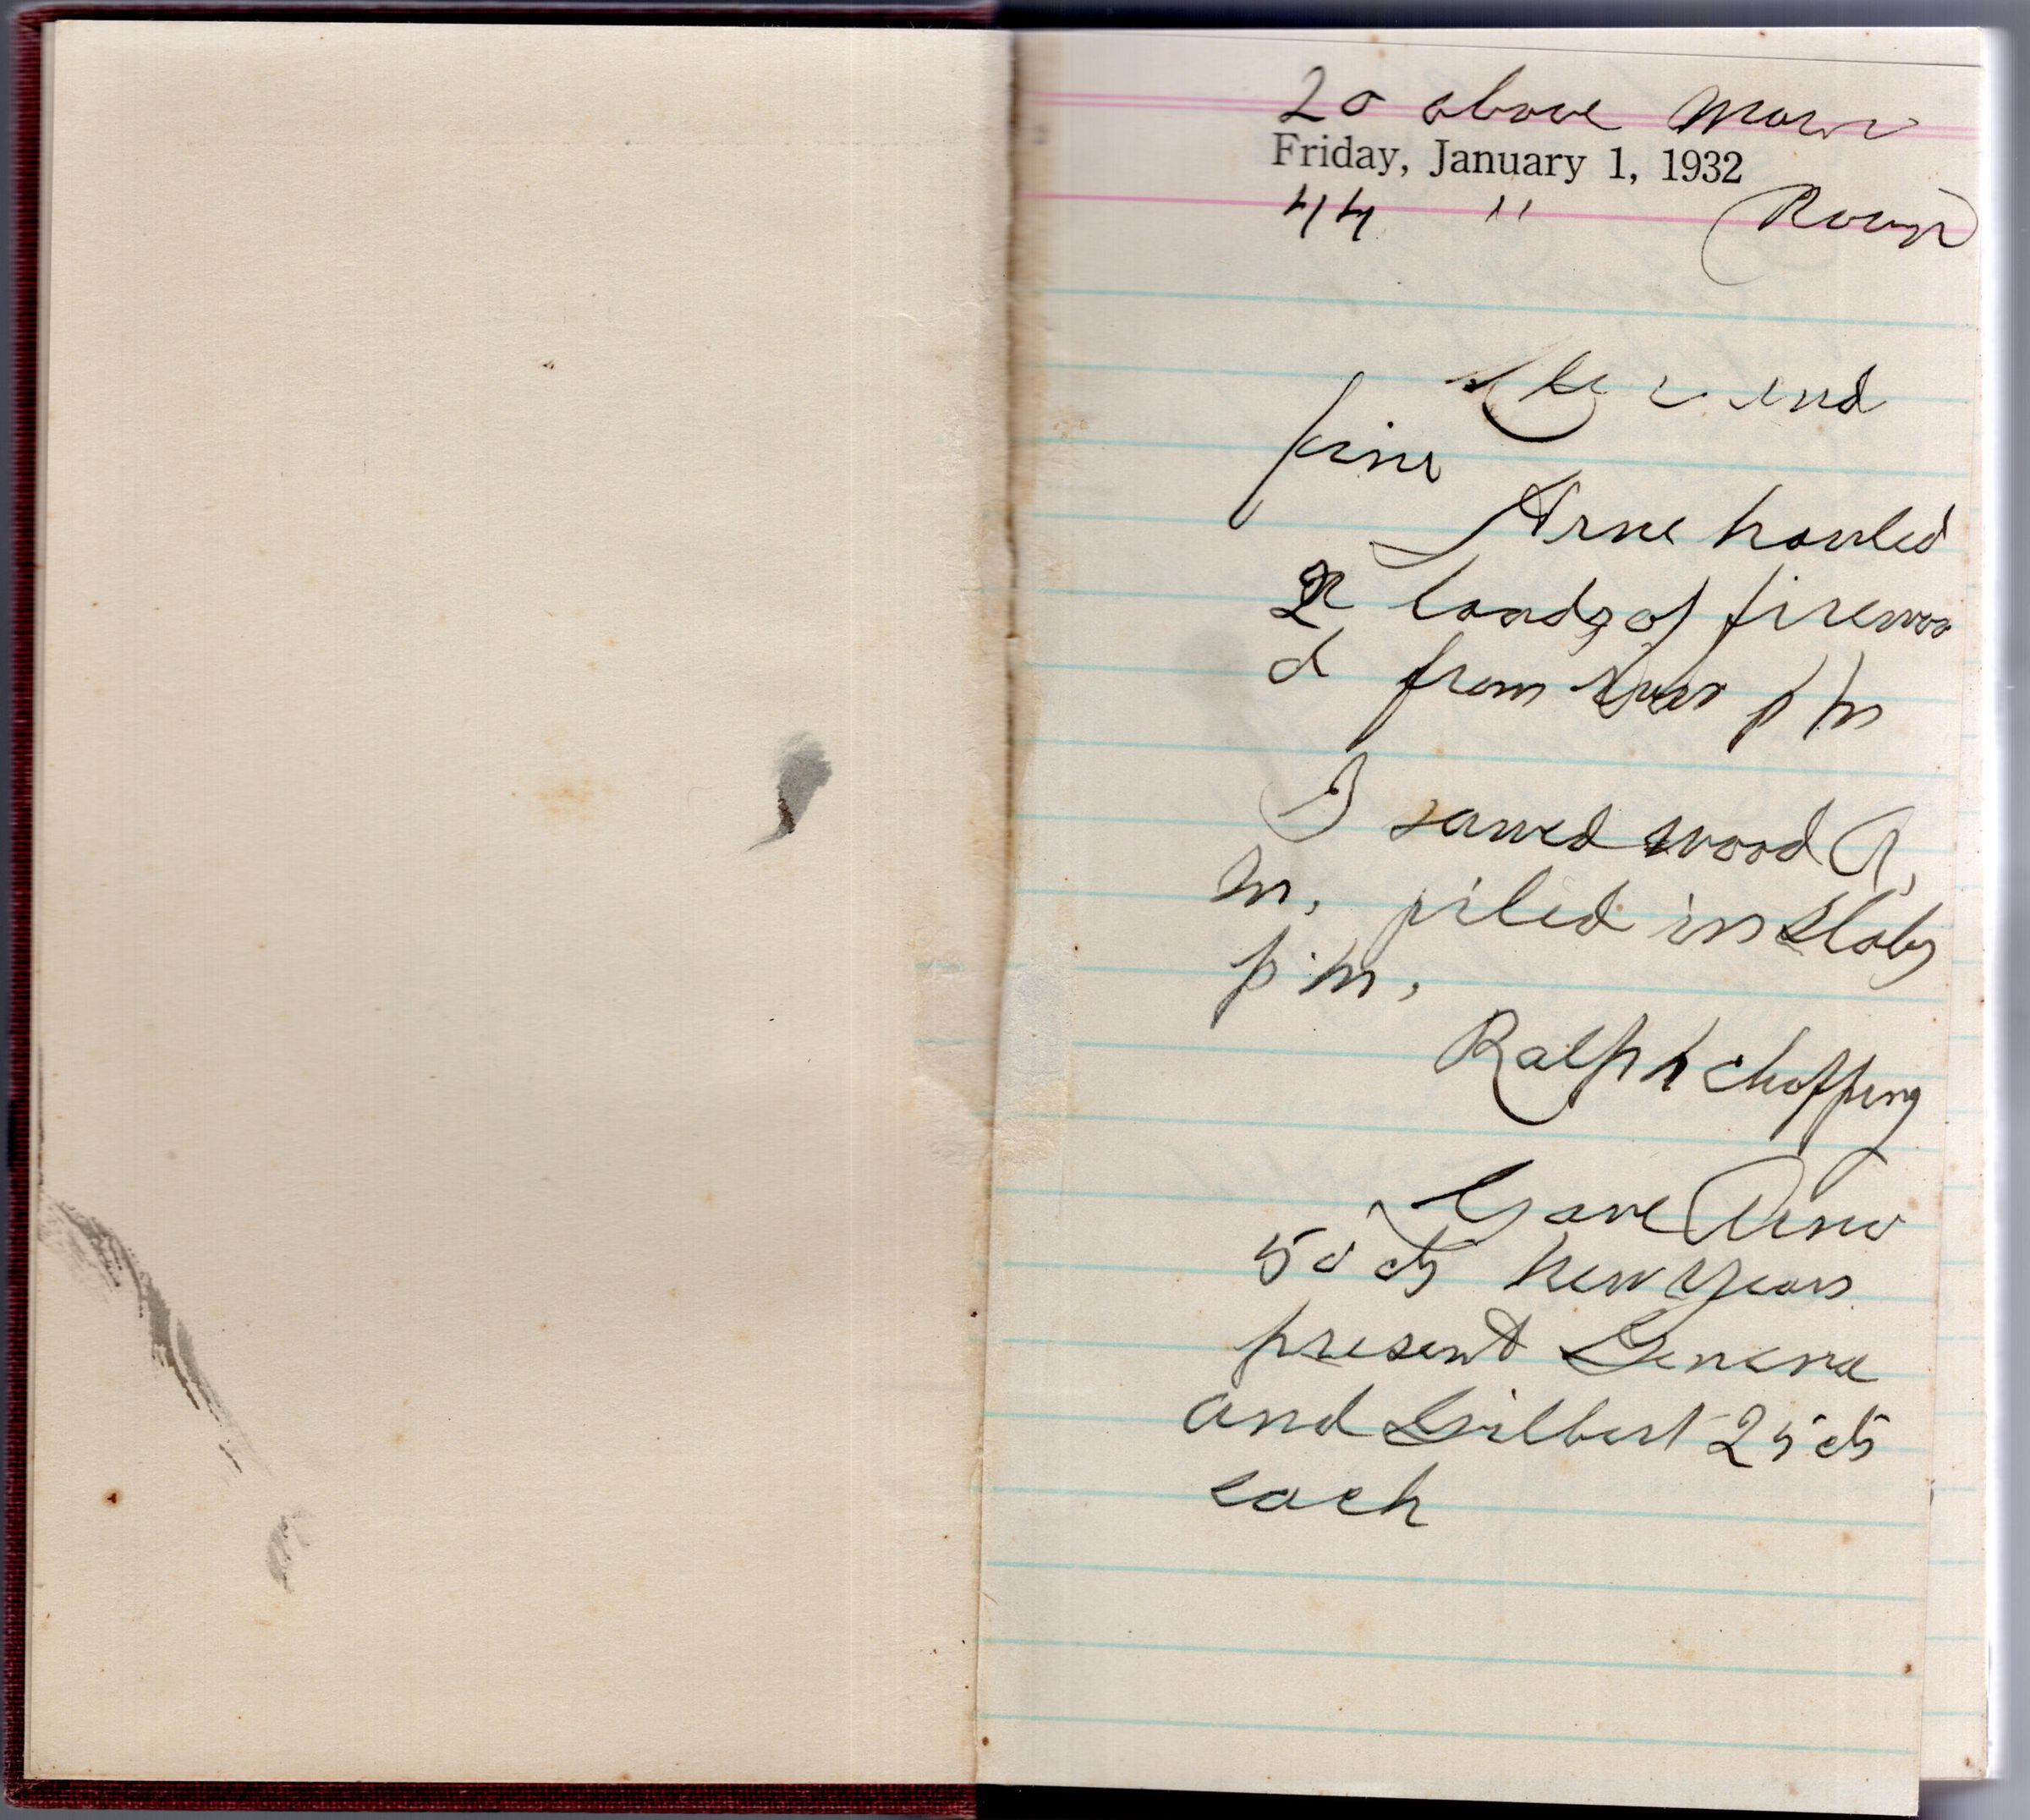 20 above Morn
Friday, January 1, 1932
44 " Noon
Clear and
fine
Arne hauled
2 loads of firewoo
d from River p m
I sawed wood A.
m, piled in slabs
p.m,
Ralph chopping
Gave Arne
50 cts New years
present Geneva
and Gilbert 25 cts
each